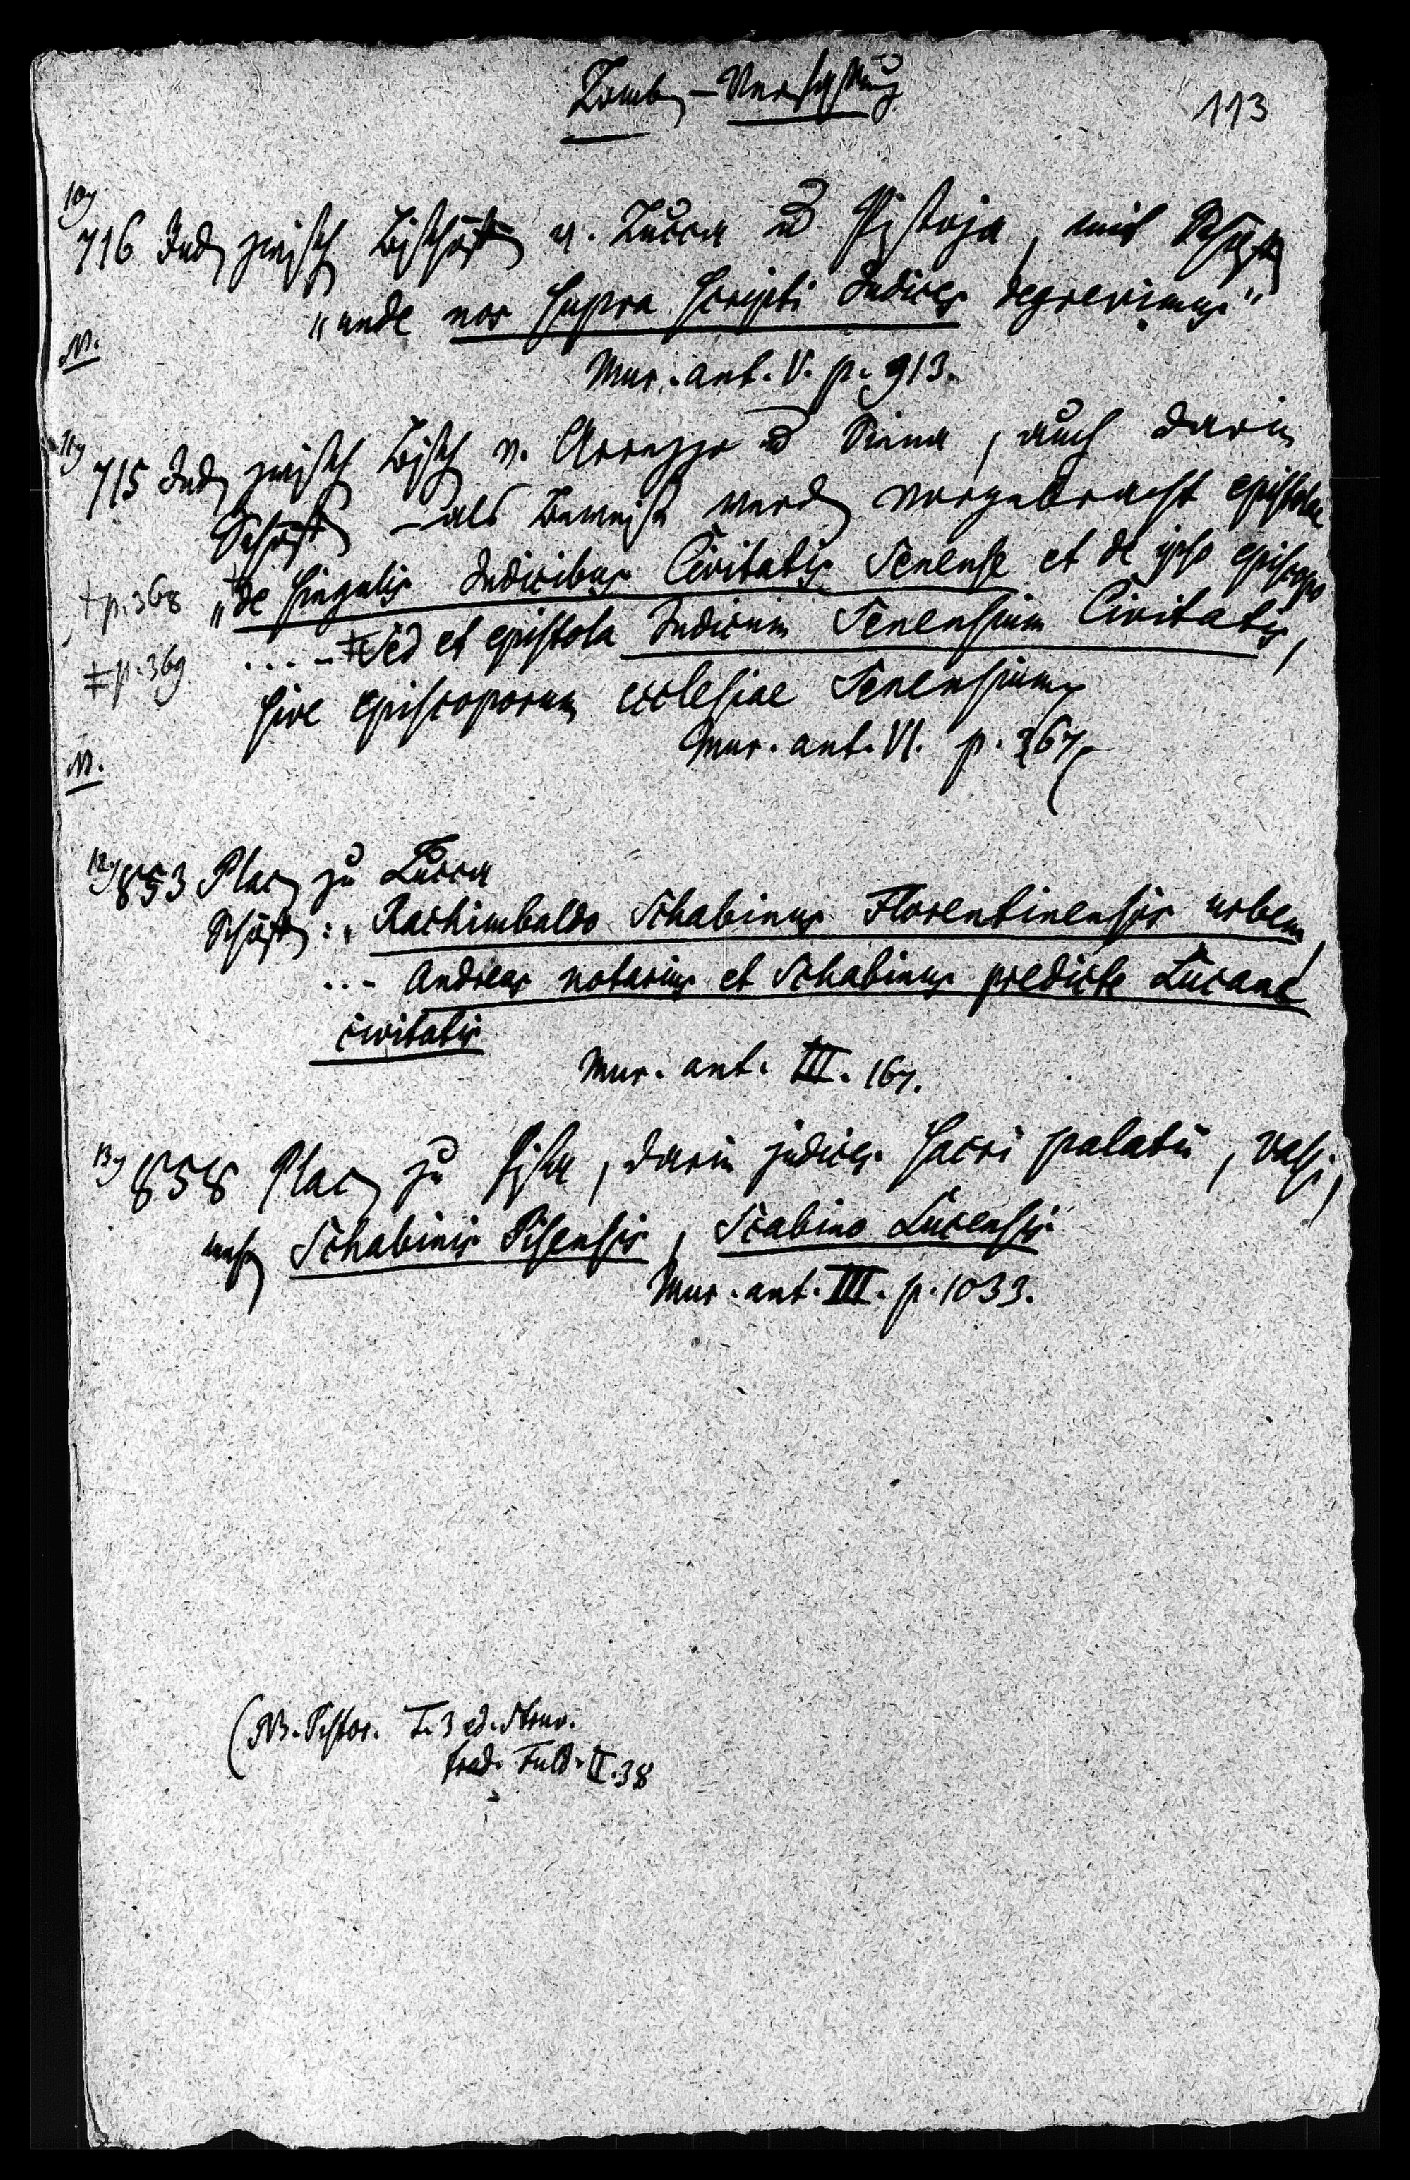 Lomb – Verfassung
113
10)
716 Jud zwisch Bischöfen v. Lucca und Pistoja, mit Schöff
„unde nos supra scripti Judices degrevimus"
N.
Mur. ant. V. p. 913.
11)
715 Jud zwisch Bisch v. Arezzo und Siena, auch darin
Schöff – als Beweise werd vorgebracht epistolae
† p. 368 „† de singulis Judicibus Civitatis Senense et de ipso episcopo
‡ p. 369 .... – ‡ sed et epistola Judicum Senensium Civitatis,
sive episcoporum ecclesiae Senensium
Mur. ant. VI. p. 367
N.
12) 853 Plac zu Lucca
Schöff: „Rachimbaldo Schabinus Florentinensis urbem,
... Andreas notarius et Schabinus predicte Lucane
civitatis
Mur. ant. III. 167.
13) 858 Plac zu Pisa, darin judices sacri palatii, vassi,
Schabinis Pisensis, Scabino Lucensis
Mur. ant. III. p. 1033.
(NB. Pistor. T. 3 ed. Struv.
trad. Fuld. II. 38